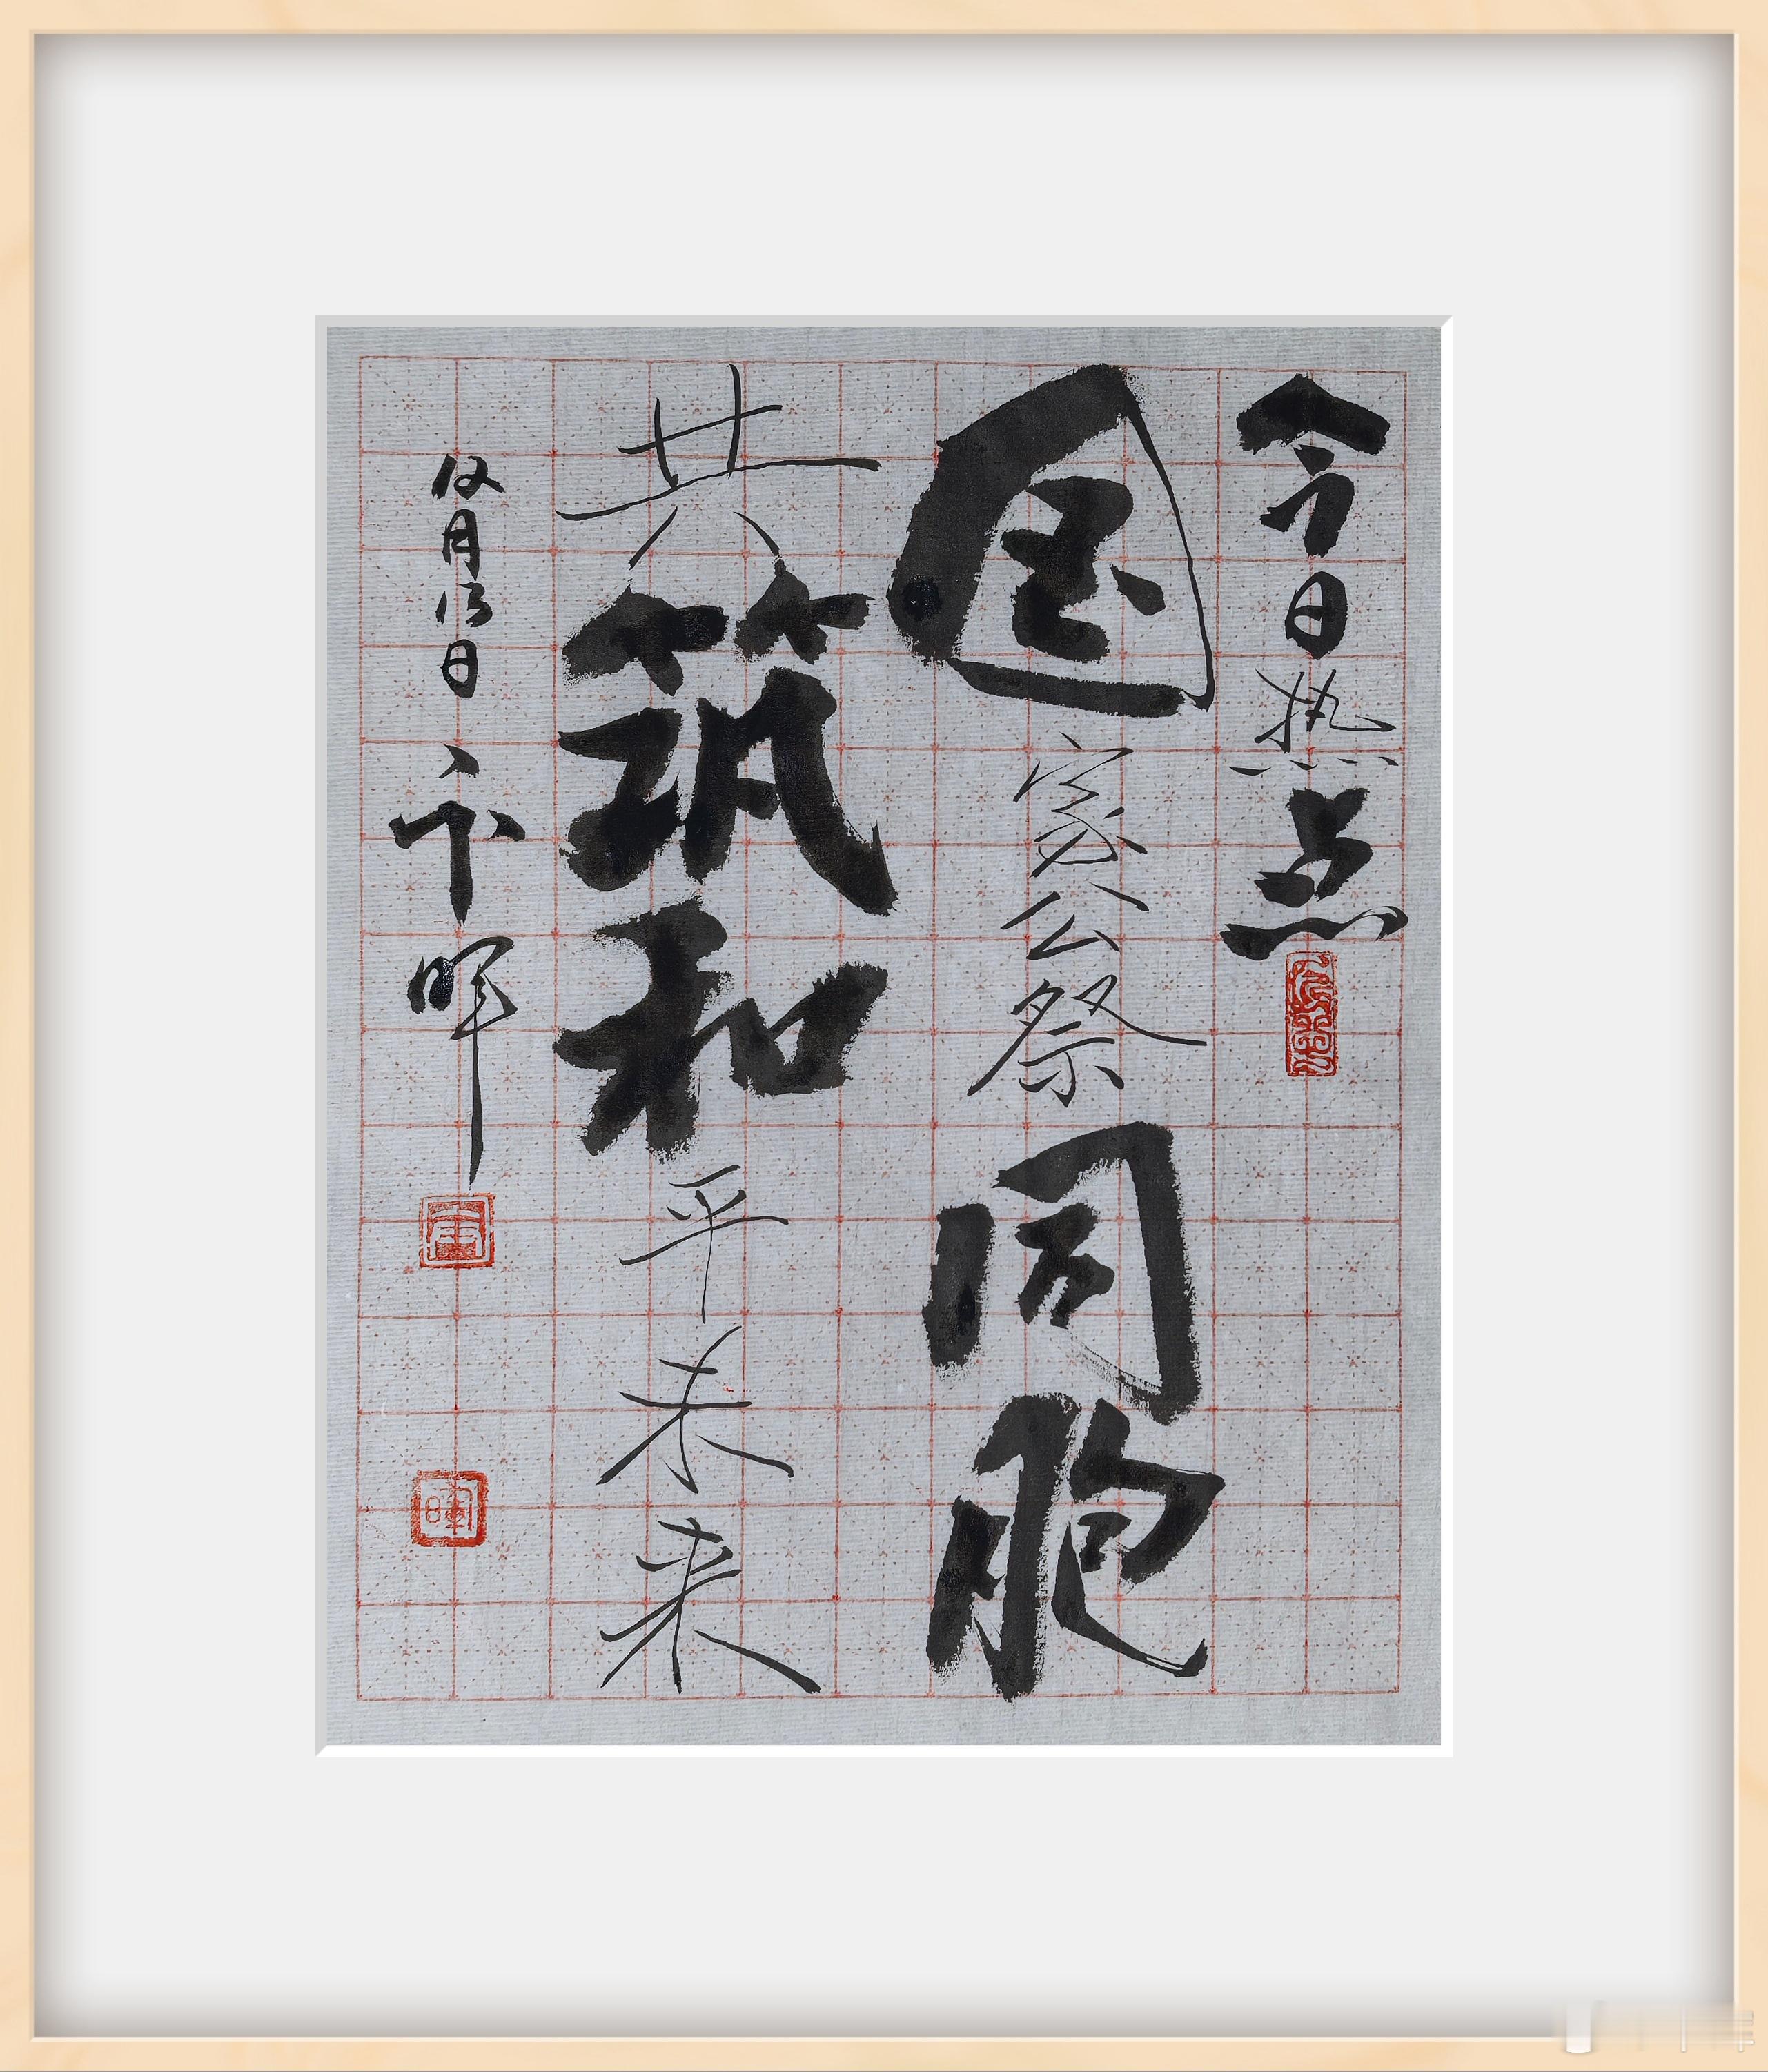 今日热点
国家公祭同胞
共筑和平未来
12月13日 卞晖